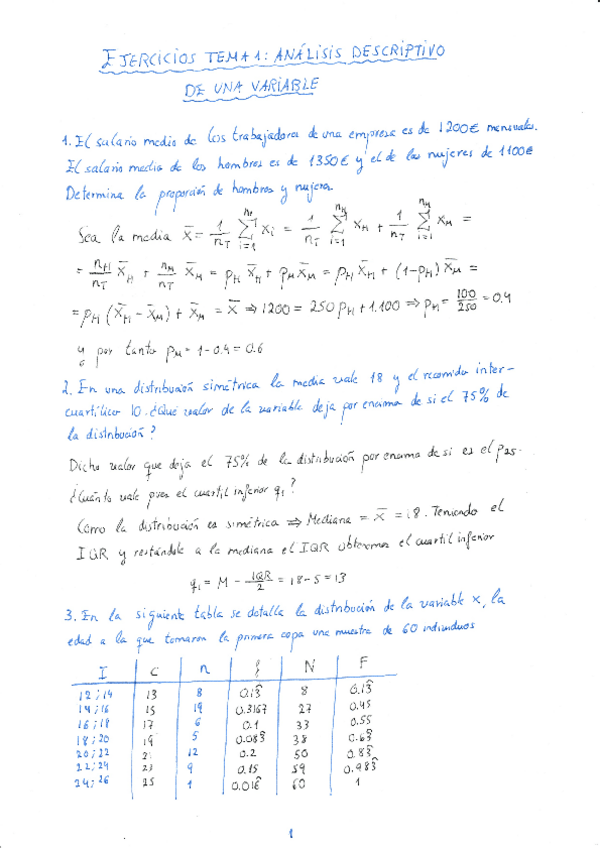 EJERCICIOS TEMA 1: ANÁLISIS DESCRIPTIVO
DE UNA VARIABLE
1. El salario medio de los trabajadores de una empresa es de 1200€ mensuales.
El salario medio de los hombres es de 1350€ y el de las mujeres de 1100€
Determina la proporción de hombres y mujeres.
Sea la media x̄ = 1/n_T Σ_{i=1}^{n_T} x_i = 1/n_T Σ_{i=1}^{n_H} x_H + 1/n_T Σ_{i=1}^{n_M} x_M =
= n_H/n_T x̄_H + n_M/n_T x̄_M = p_H x̄_H + p_M x̄_M = p_H x̄_H + (1-p_H) x̄_M =
= p_H (x̄_H - x̄_M) + x̄_M = x̄ ⇒ 1200 = 250 p_H + 1.100 ⇒ p_H = 100/250 = 0.4
y por tanto p_M = 1-0.4 = 0.6
2. En una distribución simétrica la media vale 18 y el recorrido inter-
cuartílico 10. ¿Qué valor de la variable deja por encima de si el 75% de
la distribución?
Dicho valor que deja el 75% de la distribución por encima de si es el P25.
¿Cuánto vale pues el cuartil inferior q₁?
Como la distribución es simétrica ⇒ Mediana = x̄ = 18. Teniendo el
IQR y restándole a la mediana el IQR obtenemos el cuartil inferior
q₁ = M - IQR/2 = 18-5 = 13
3. En la siguiente tabla se detalla la distribución de la variable x, la
edad a la que tomaron la primera copa una muestra de 60 individuos
I C n f N F
12;14 13 8 0.13̂ 8 0.13̂
14;16 15 19 0.3167 27 0.45
16;18 17 6 0.1 33 0.55
18;20 19 5 0.083̂ 38 0.63̂
20;22 21 12 0.2 50 0.83̂
22;24 23 9 0.15 59 0.983̂
24;26 25 1 0.016̂ 60 1
1